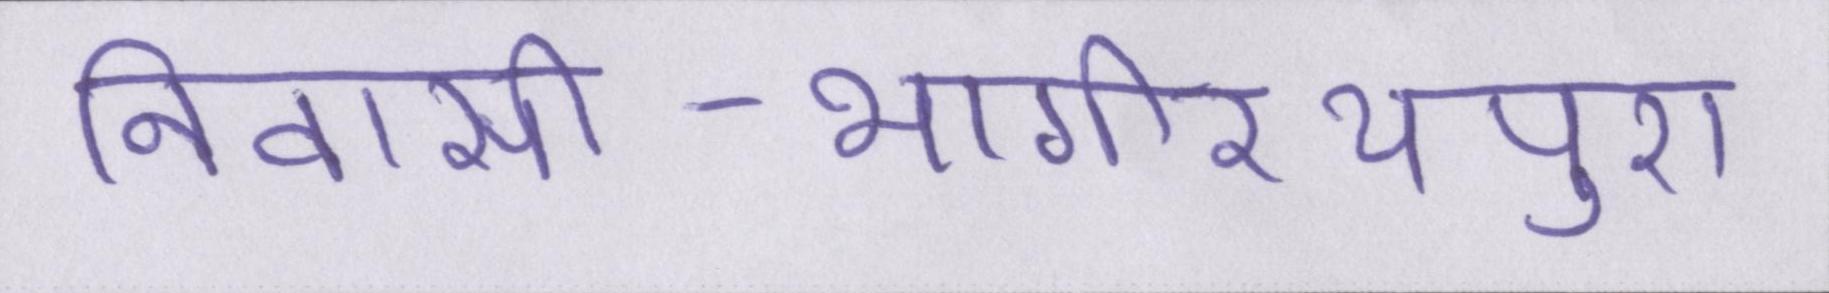 निवासी - भागीरथपुरा